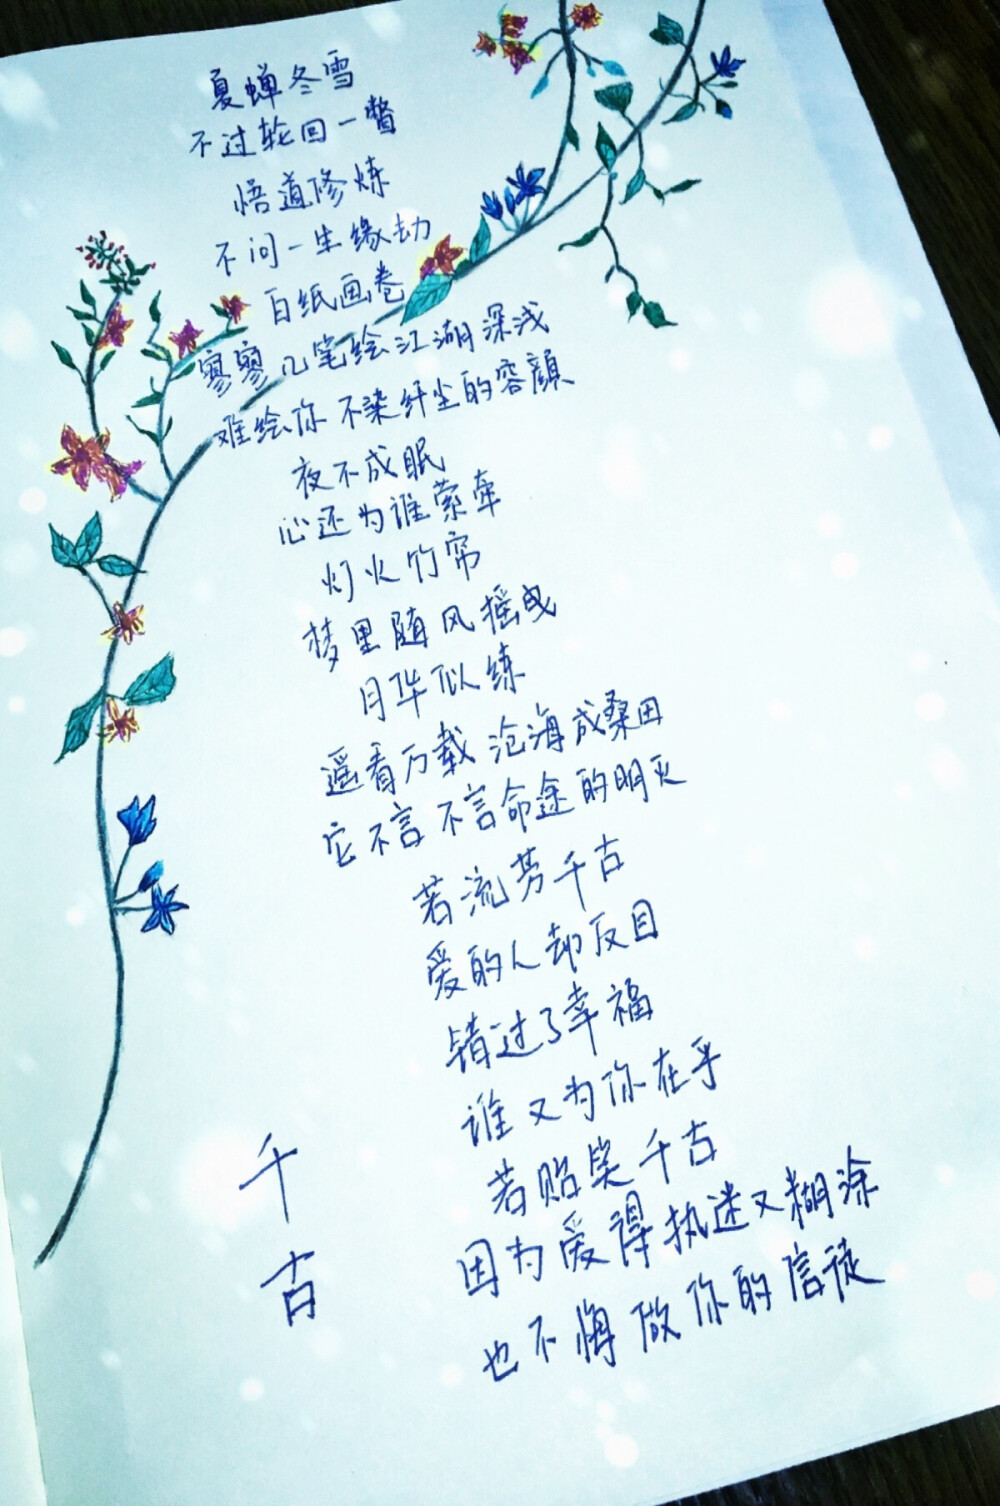 夏蝉冬雪
不过轮回一瞥
悟道修炼
不问一生缘劫
白纸画卷
寥寥几笔绘江湖深浅
难绘你 不染纤尘的容颜
夜不成眠
心还为谁萦牵
灯火竹帘
梦里随风摇曳
月华似练
遥看万载 沧海成桑田
它不言 不言命途的明灭
若流芳千古
爱的人却反目
错过了幸福
谁又为你在乎
若贻笑千古
因为爱得执迷又糊涂
也不悔做你的信徒
千古